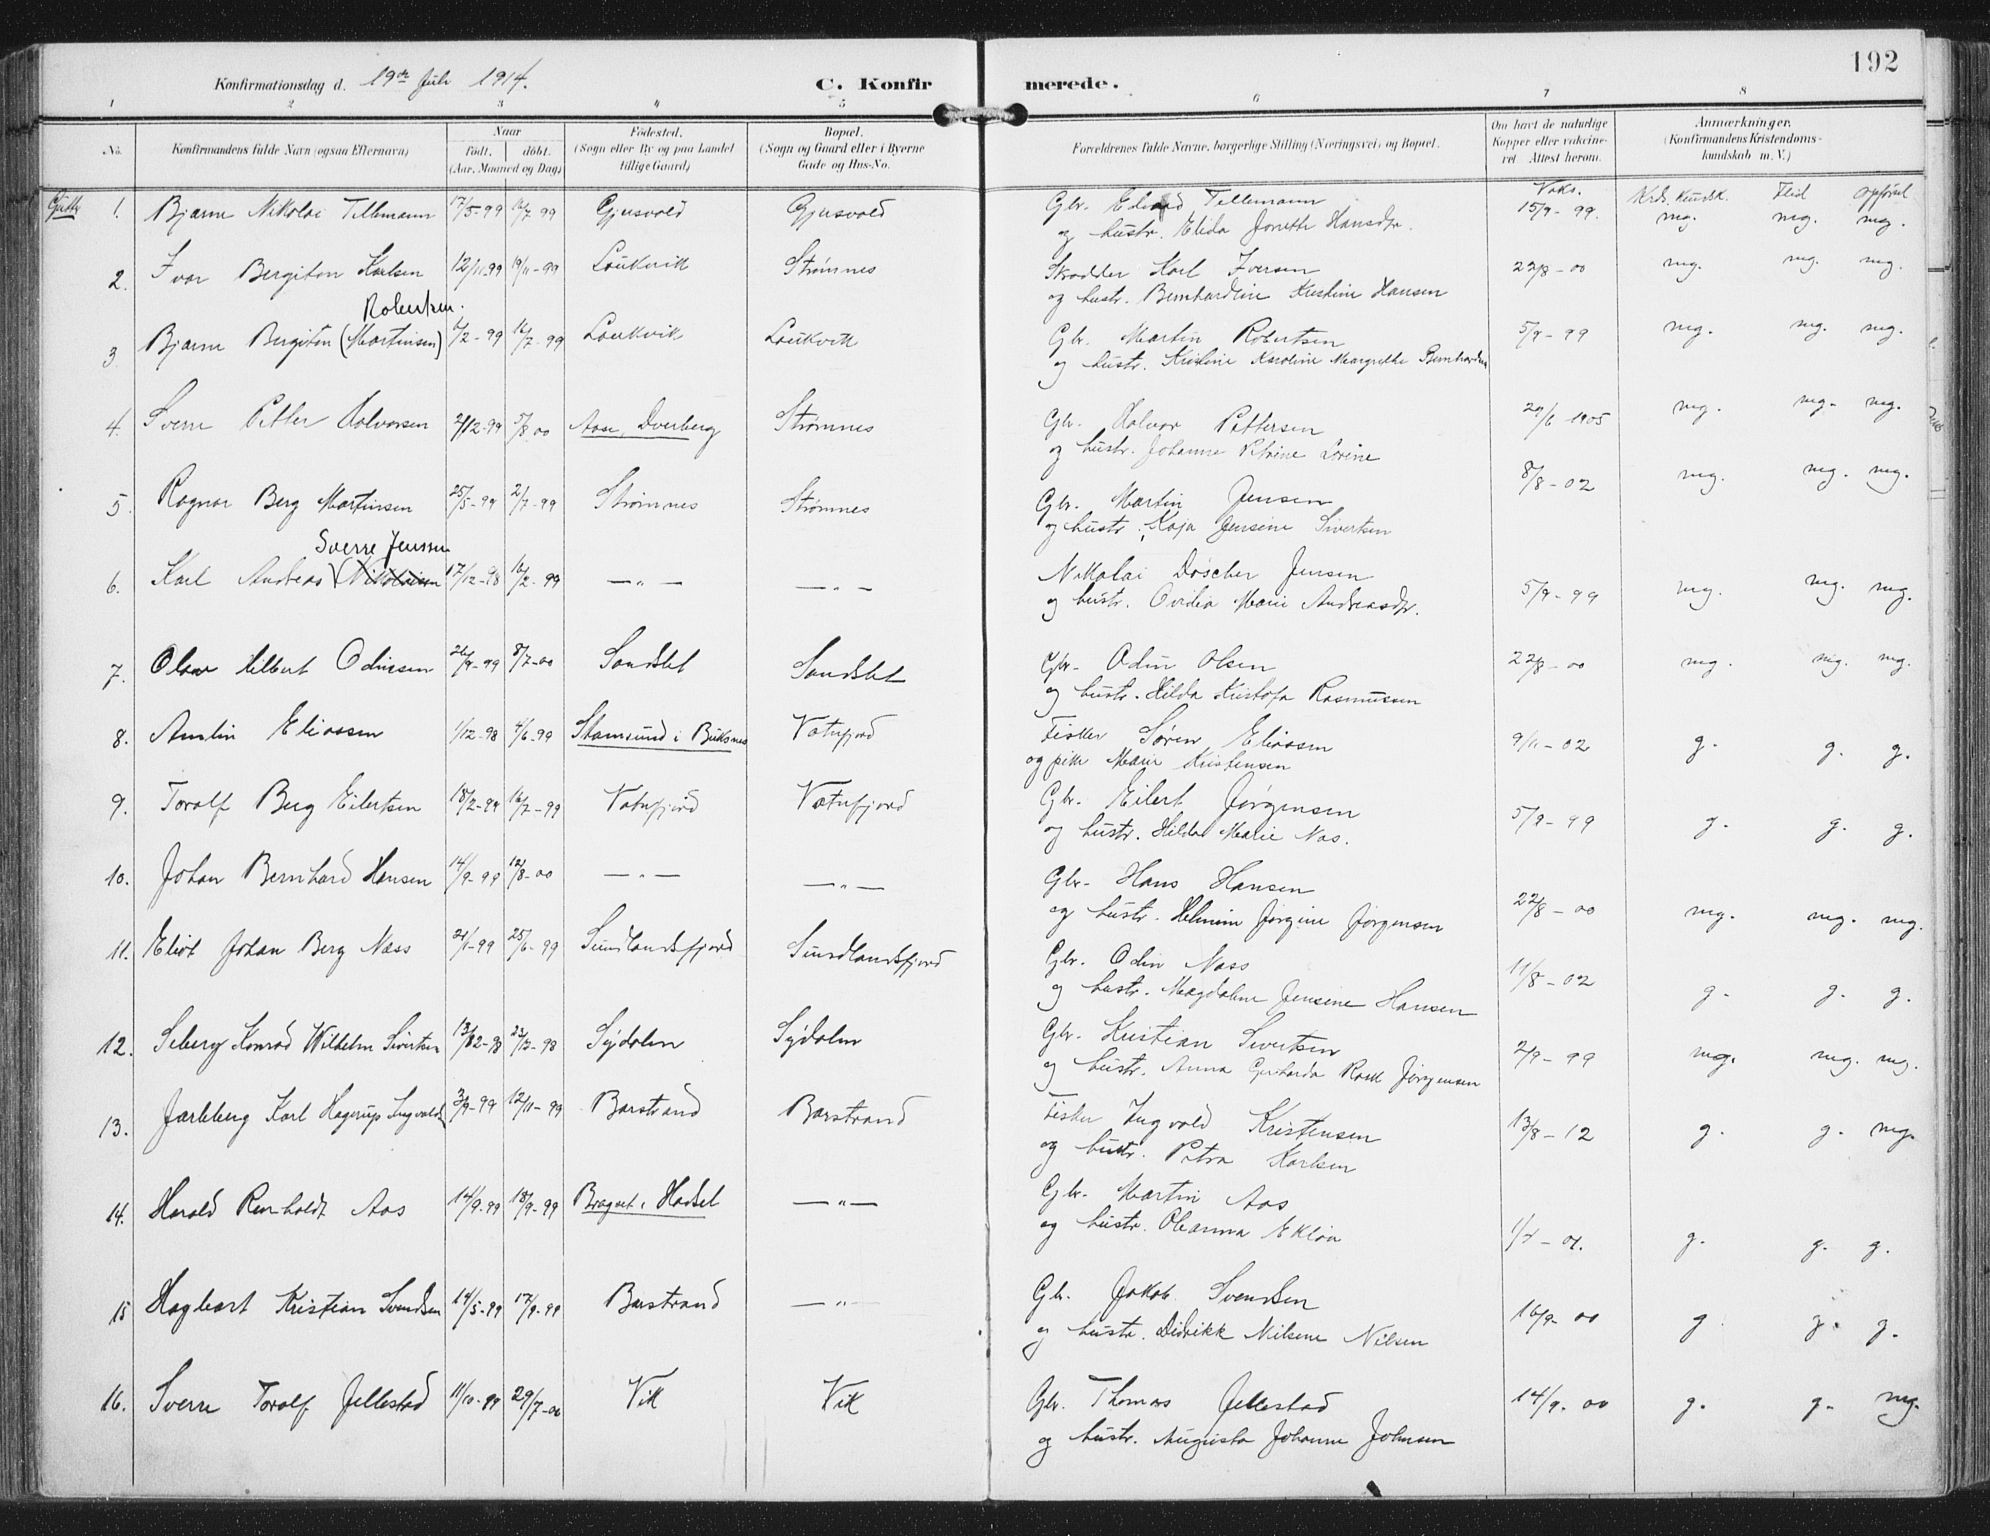 192
Konfirmationsdag d. 19de Juli 1914.
C. Konfirmerede.
1 2 3 4 5 6 7 8
No.
Konfirmandens fulde Navn (ogsaa Efternavn)
Naar
født. døbt.
(Aar, Maaned og Dag)
Fødested.
(Sogn eller By og paa Landet
tillige Gaard)
Bopæl.
(Sogn og Gaard eller i Byerne
Gade og Hus-No.
Forældrenes fulde Navne, borgerlige Stilling (Næringsvei) og Bopæl.
Om havt de naturlige
Kopper eller vakcine-
ret Attest herom.
Anmærkninger.
(Konfirmandens Kristendoms-
kundskab m. V.)
Gutter
Vaks. Krds. kundsk. Flid Opførsel
1. Bjarne Nikolai Tellmann 17/5-99 16/7 99 Gjusvold Gjusvold Gbr. Edvard Tellemann 15/9-99. mg. mg. mg.
og hustr. Elida Jonette Hansdtr.
2. Ivar Bergiton Karlsen 12/11-99 19/11-99 Laukvik Strømnes Skrædder Karl Iversen 22/8-00 mg. mg. mg.
og hustr. Bernhardine Kristine Hansen
Robertsen.
3. Bjarne Bergiton (Martinsen) 6/2-99 16/7-99 Laukvik Laukvik Gbr. Martin Robertsen 5/9-99 mg. mg. mg.
og hustr. Kristine Karoline Margrethe Bernhardsen
4. Sverre Petter Halvorsen 2/12-99 5/8 00 Aase, Dverberg Strømnes Gbr. Halvor Pettersen 29/6 1905 mg. mg. mg.
og hustr. Johanne Petrine Lorine
5. Ragnar Berg Martinsen 25/5-99 2/7-99 Strømnes Strømnes Gbr. Martin Jensen 8/8-02 mg. mg. mg.
og hustr. Kaja Jensine Sivertsen
Sverre Jensen
6. Karl Andreas (Nikolaisen 17/12-98 16/2-99 — " — — " — Nikolai Døscher Jensen 5/9-99 mg. mg. mg.
og hustr. Ovidia Marie Andreasdtr.
7. Olav Hilbert Odinsen 26/9-99 8/7-00 Sandslet Sandslet Gbr. Odin Olsen 22/8-00 mg. mg. mg.
og hustr. Hilda Kristofa Rasmussen
8. Anton Eliassen 1/12-98 4/6-99 Stamsund i Buksnes Vatnfjord Fisker Søren Eliassen 9/11-02 g. g. g.
og pike Marie Kristensen
9. Toralf Berg Eilertsen 18/2-99 16/7-99 Vatnfjord Vatnfjord Gbr. Eilert Jørgensen 5/9-99 g. g. g.
og hustr. Hilda Marie Nos.
10. Johan Bernhard Hansen 14/9-99 12/8-00 — " — — " — Gbr. Hans Hansen 22/8-00 mg. mg. mg.
og hustr. Helmine Jørgine Jørgensen
11. Eliot Johan Berg Næss 21/1-99 25/6-99 Sundlandsfjord Sundlandsfjord Gbr. Odin Næss 11/8-02 g. g. g.
og hustr. Magdalene Jensine Hansen
12. Seberg Konrad Wilhelm Sivertsen 13/82-98 23/12-98 Sydalen Sydalen Gbr. Kristian Sivertsen 2/9-99 mg. mg. mg.
og hustr. Anna Gerharda Rask Jørgensen
13. Jarlberg Karl Hagerup Ingvalds 3/9-99 12/11-99 Barstrand Barstrand Fisker Ingvald Kristensen 13/8-12 g. g. mg.
og hustr. Petra Karlsen
14. Harald Reinholdt Aas 14/9-99 18/9-99 Bragnet i Hadsel — " — Gbr. Martin Aas g. g. g.
og hustr. Oleanna Eklöv
15 Hagbart Kristian Svendsen 14/5-99 17/9-99 Barstrand — " — Gbr. Jakob Svendsen 16/9-00 g g. g.
og hustr. Didrikk Nilsine Nilsen
16. Sverre Toralf Jellestad 11/10-99 29/7-00 Vik Vik Gbr. Thomas Jellestad 14/9-00 g. g. mg.
og hustr. Augusta Johanne Johnsen